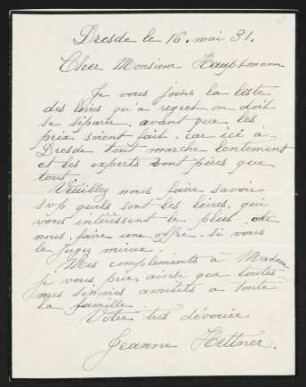 Dresde le 16. mai 31.
Cher Monsieur Hauptmann
Je vous joins la liste
des livres qu'a regret on doit
se séparer. avant que les
prix soient fait. car ici à
Dresde tout marche lentement
et les experts sont pires que
tout.
Veuillez nous faire savoir
svp quels sont les livres, qui
vous intéressent le plus. et
nous faire une offre. si vous
le jugez mieux.
Mes compléments à Madame
je vous prie, ainsi que toutes
mes sincères amitiés a toute
la famille
Votre très dévouée
Jeanne Hettner.